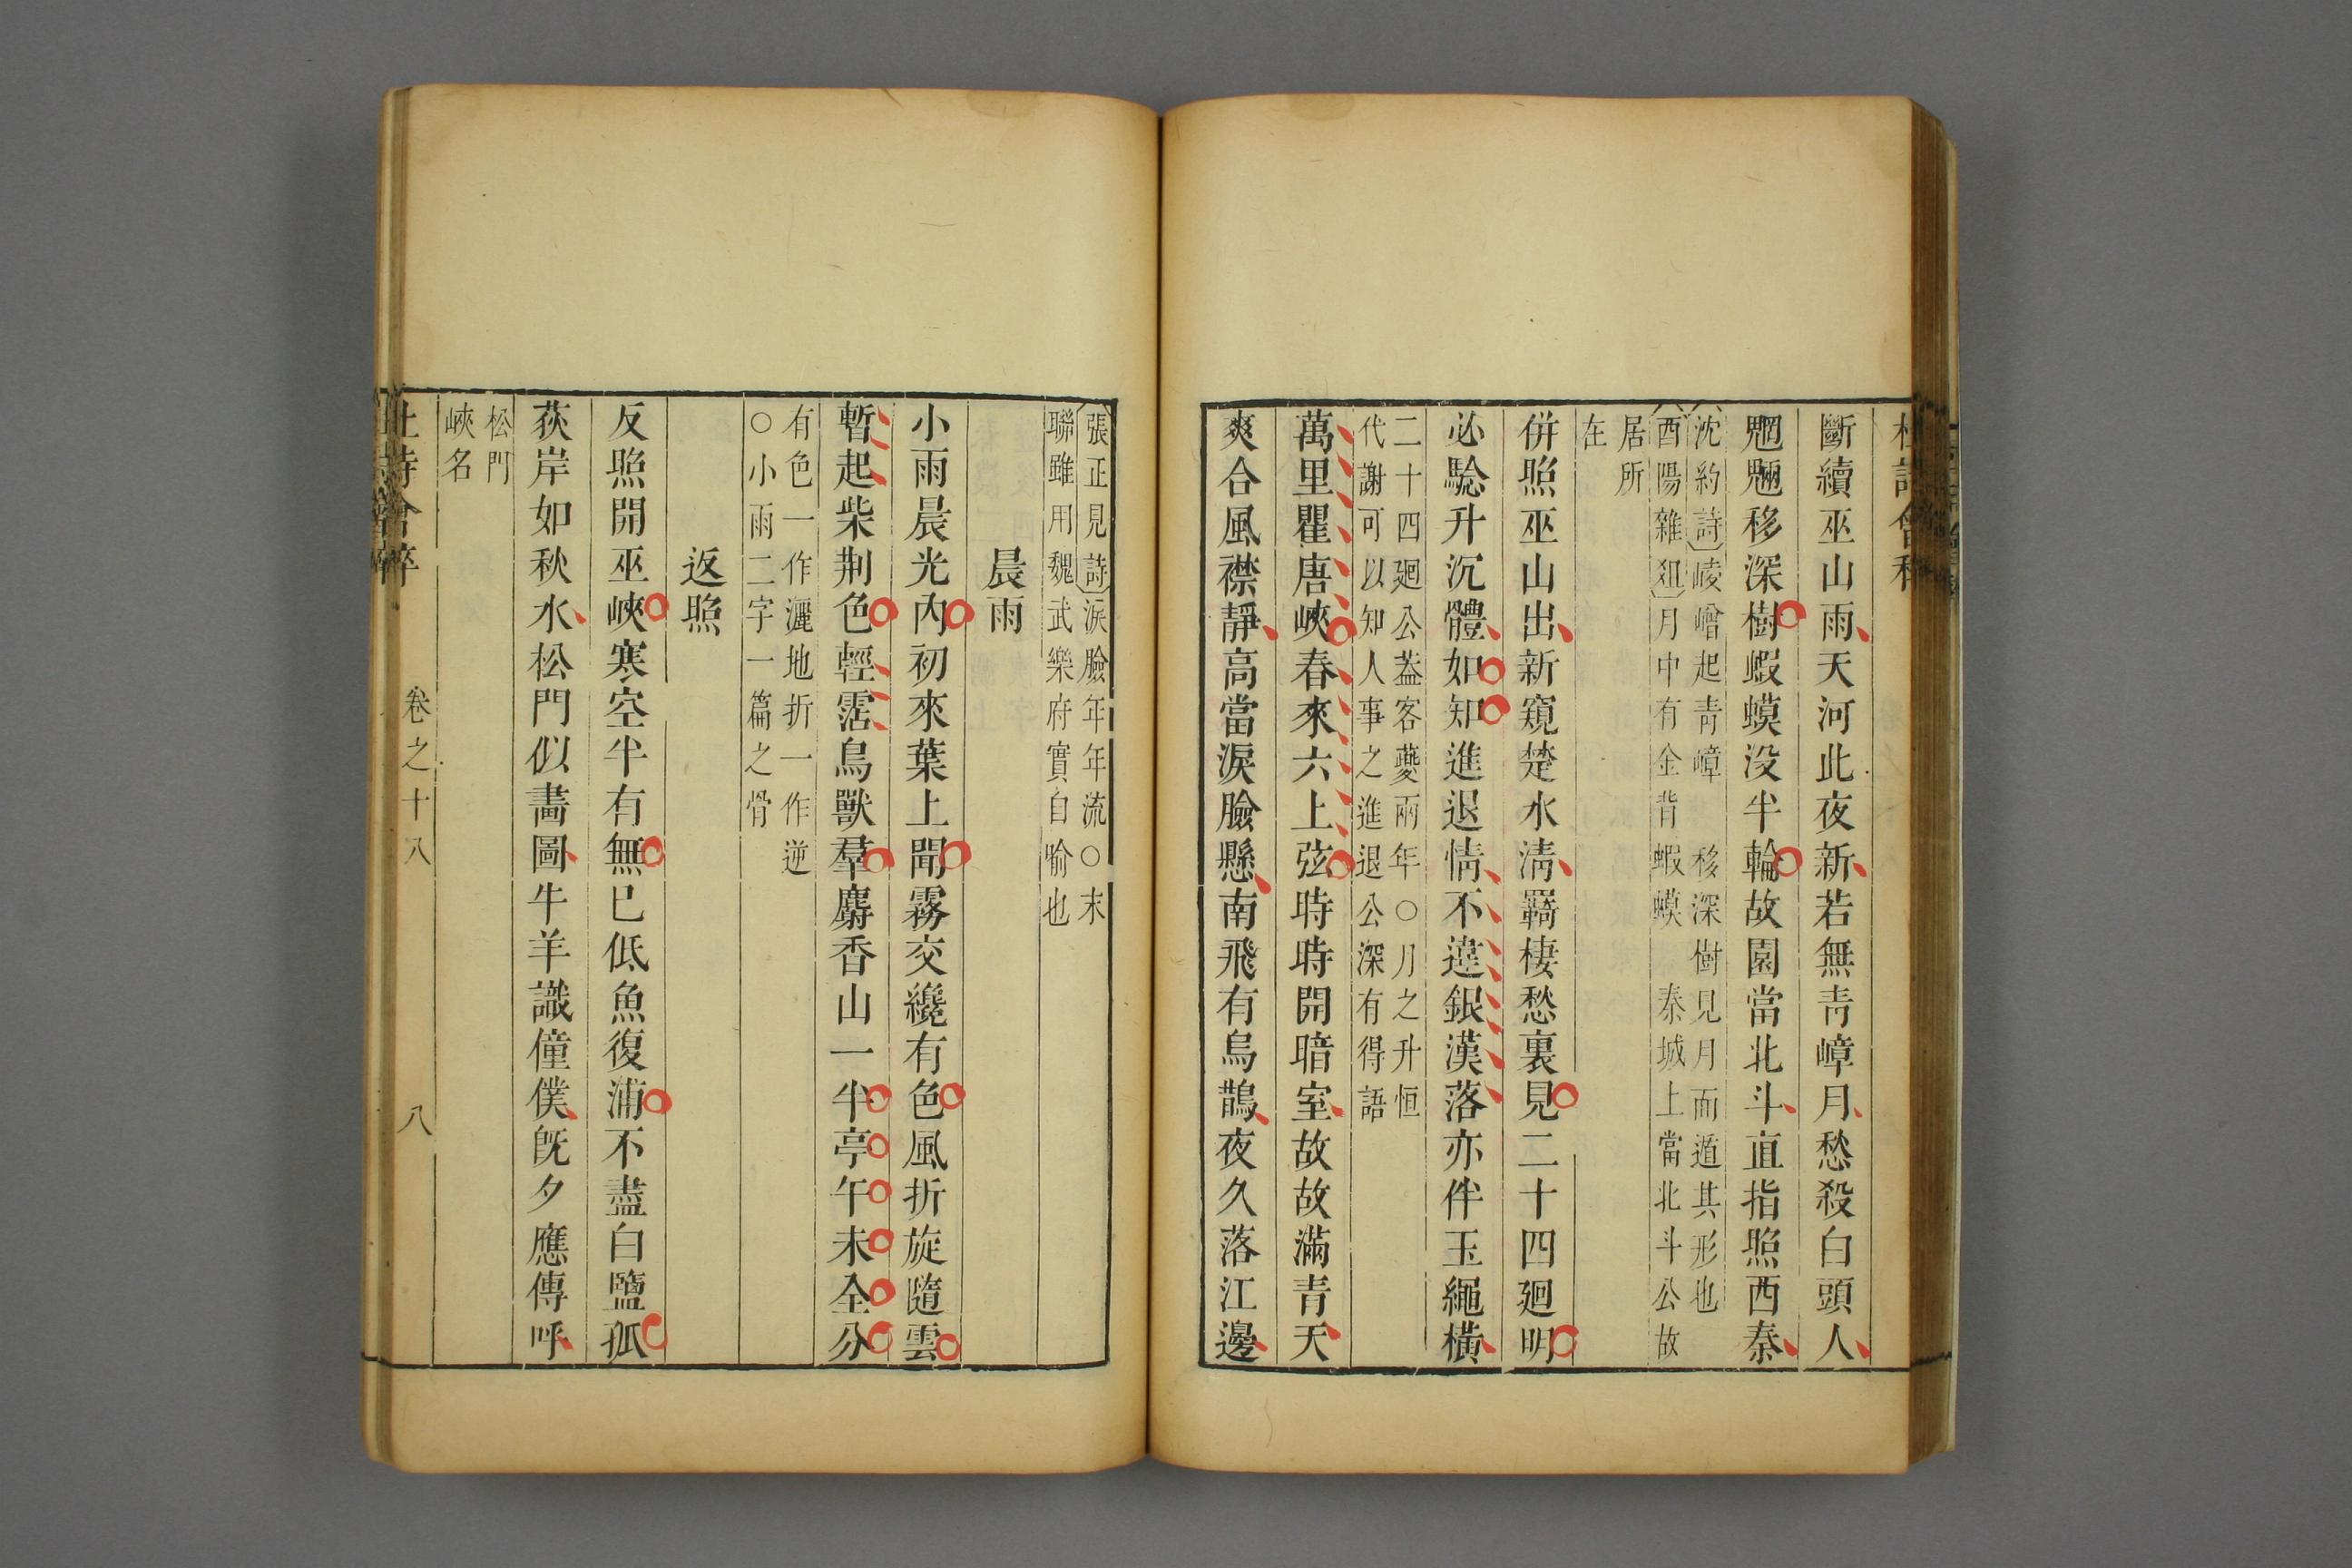 斷續巫山雨天河此夜新若無靑嶂月愁殺白頭人
魍魎移深樹蝦蟆没半輪故園當北斗直指照西秦
沈約詩崚嶒起靑嶂 移深樹見月而遁其形也
酉陽雜俎月中有金背蝦蟆 秦城上當北斗公故
居所
在
併照巫山出新窺楚水淸羇棲愁裏見二十四廻明
必驗升沉體如知進退情不違銀漢落亦伴玉繩橫
二十四廻公葢客夔兩年○月之升恒
代謝可以知人事之進退公深有得語
萬里瞿唐峽春來六上弦時時開暗室故故滿青天
爽合風襟靜高當淚臉懸南飛有烏鵲夜久落江邊
張正見詩淚臉年年流○末
聯雖用魏武樂府實自喻也
晨雨
小雨晨光內初來葉上聞霧交纔有色風折旋隨雲
暫起柴荆色輕霑鳥獸羣麝香山一半亭午未全分
有色一作灑地折一作逆
○小雨二字一篇之骨
返照
反照開巫峽寒空半有無已低魚復浦不盡白鹽孤
荻岸如秋水松門似畵圖牛羊識僮僕旣夕應傳呼
松門
峽名
卷之十八 八